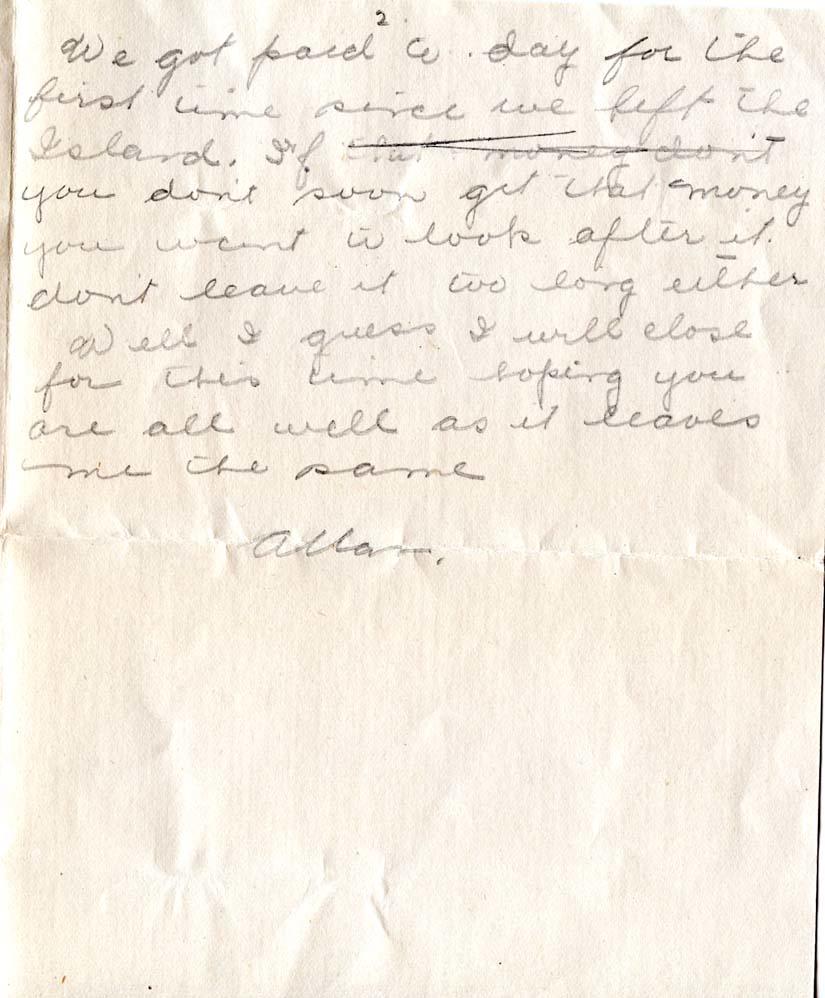 2
We got paid to day for the
first time since we left the
Island. If that money don't
you don't soon get that money
you want to look after it.
don't leave it too long either
Well I guess I will close
for this time hoping you
are all well as it leaves
me the same
Allan.